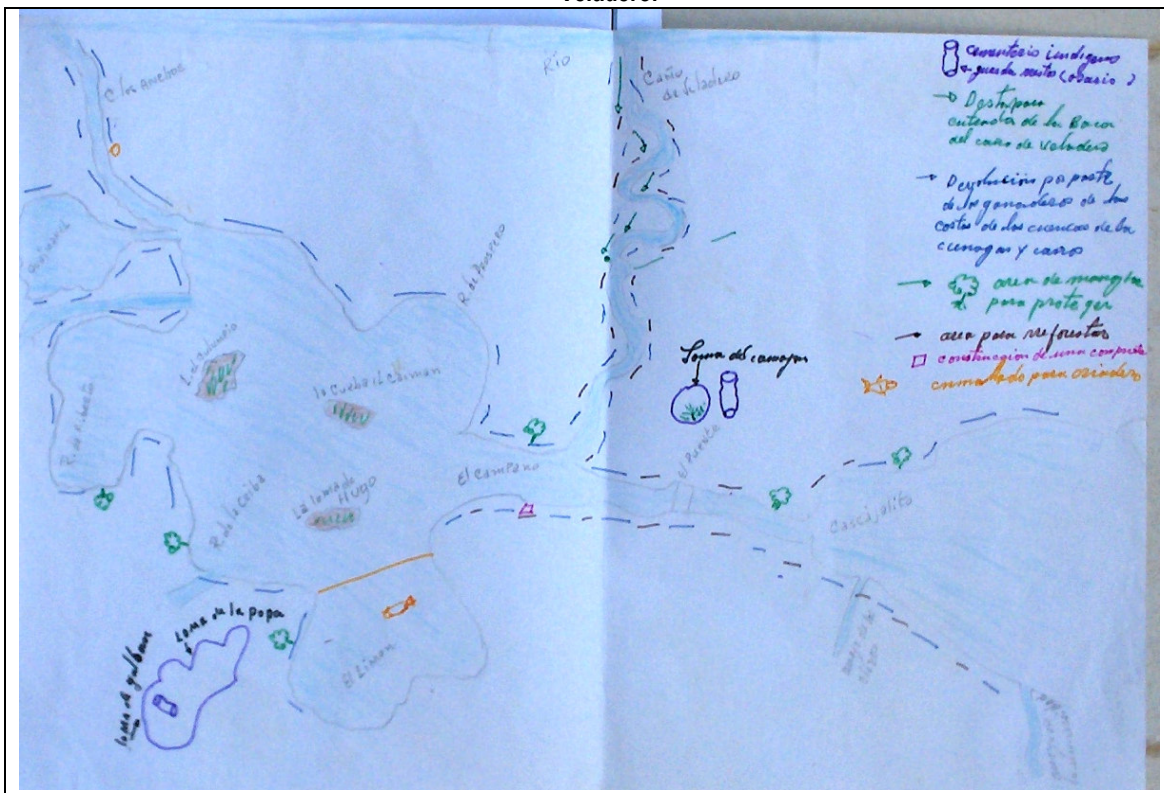 veladero.
Río
Caño
de veladero
cementerio indigena
guarda resto (osario)
Destapar
entrada de la Boca
del caño de Veladero
Devolución por parte
de los ganaderos de las
costas de las cuencas de la
cienaga y caños
area de mangles
para proteger
area para rreforestar
construcion de una compuerta
enmallado para criadero
R. de Prospero
La Cueba el Caiman
Loma del camajon
El Puente
R. de Riberto
R. de la Ceiba
La loma de
Hugo
El Campano
Cascajalito
Loma de la popa
Loma de galban
El Limon